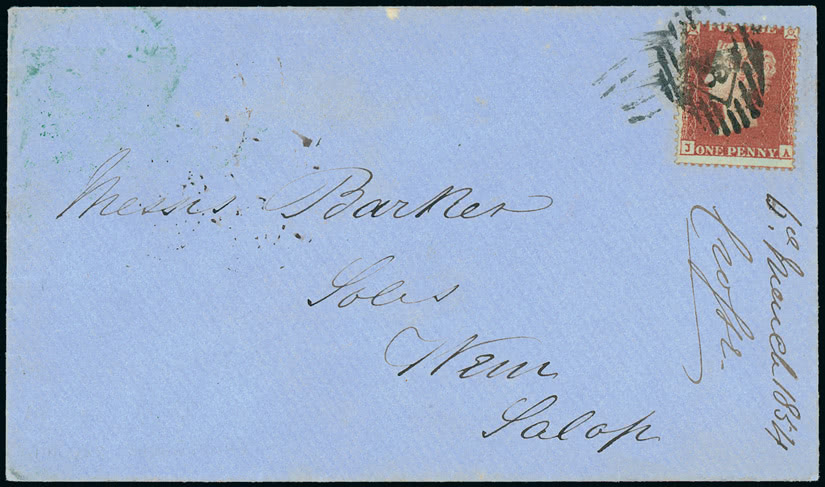 POSTAGE
J ONE PENNY A
Messrs. Barker
Soles
Wem
Salop
March 1854